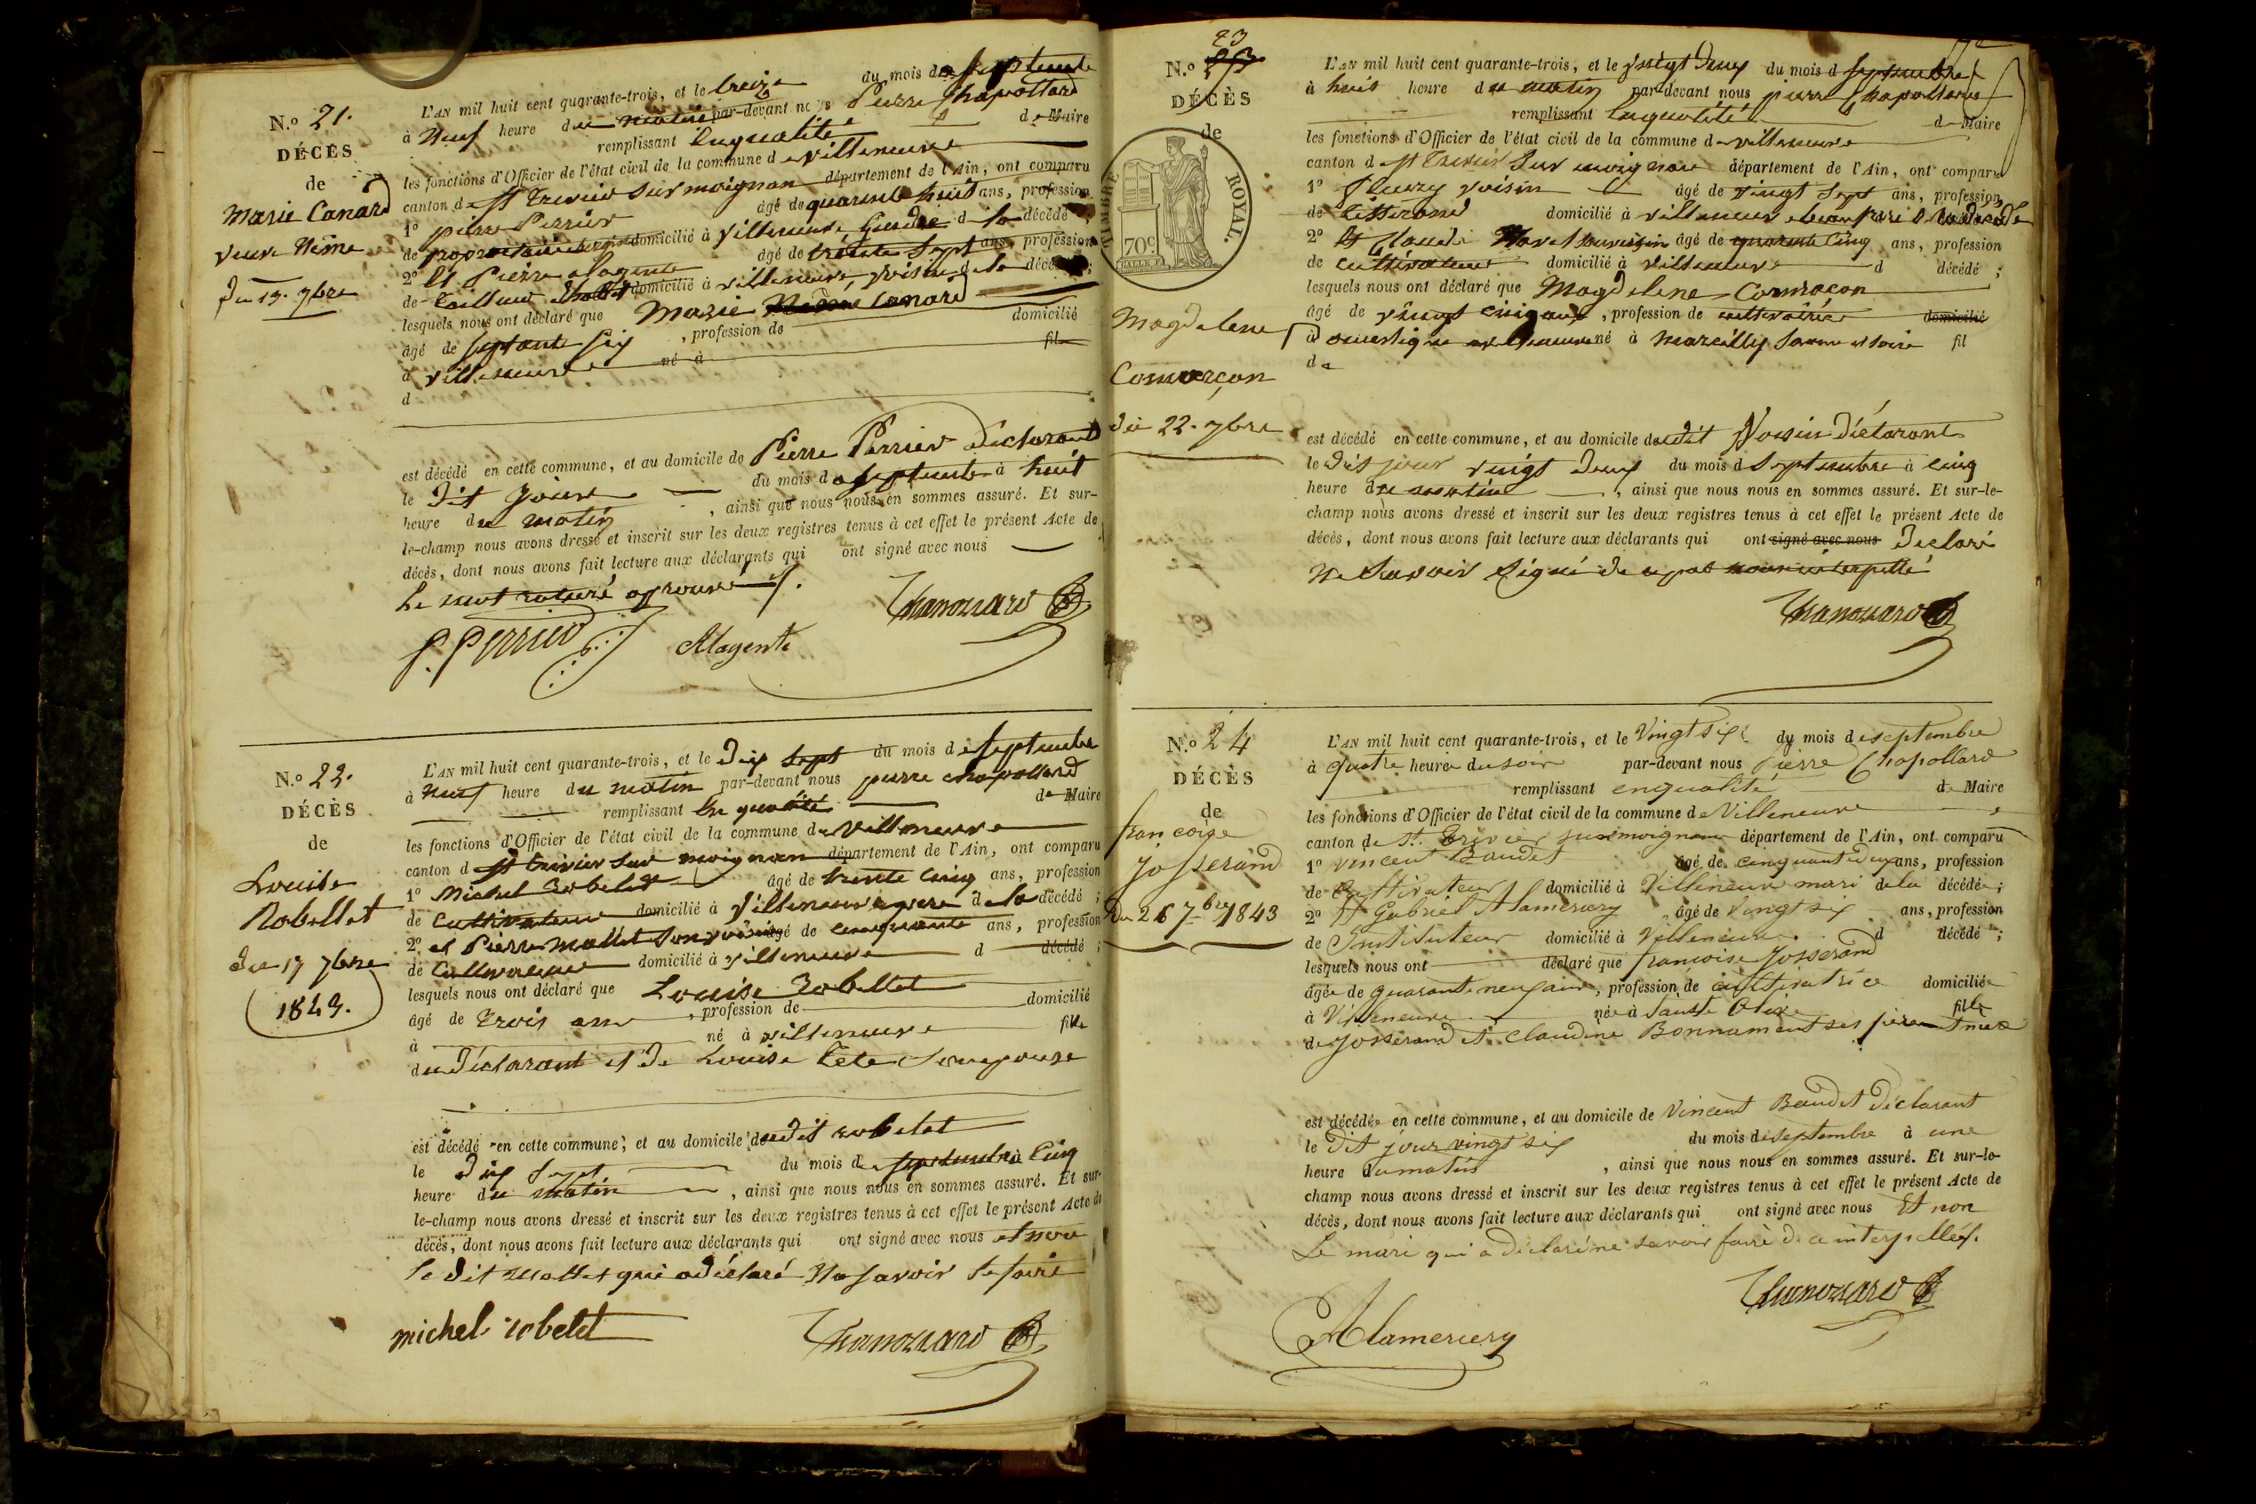 N.º 21.
DÉCÈS
de
Marie Canard
veuve Nême
du 13. 7bre
L'AN mil huit cent quarante-trois, et le treize du mois de septembre
à neuf heure du matin par-devant nous Pierre Chapollard
remplissant en qualité de Maire
les fonctions d'Officier de l'état civil de la commune de villeneuve
canton de St Trivier sur moignan département de l'Ain, ont comparu
1º pierre Perrier âgé de quarante huit ans, profession
de proprietaire domicilié à villeneuve gendre d la décédé ;
2º et Pierre alagente âgé de trente sept ans, profession
de tailleur domicilié à villeneuve, voisin de la décédé ;
lesquels nous ont déclaré que Marie Canard
âgé de septante six , profession de domicilié
à villeneuve né à fil
d
est décédé en cette commune, et au domicile de Pierre Perrier déclarant
le dit jour du mois de septembre à huit
heure du matin , ainsi que nous nous en sommes assuré. Et sur-
le-champ nous avons dressé et inscrit sur les deux registres tenus à cet effet le présent Acte de
décès, dont nous avons fait lecture aux déclarants qui ont signé avec nous
le mot raturé approuvé
P. Perrier Alagente
N.º 22.
DÉCÈS
de
Louise
Robellet
du 17 7bre
1843.
L'AN mil huit cent quarante-trois, et le dix sept du mois de septembre
à neuf heure du matin par-devant nous pierre chapollard
remplissant en qualité de Maire
les fonctions d'Officier de l'état civil de la commune de villeneuve
canton de St trivier sur moignan département de l'Ain, ont comparu
1º Michel Robelet âgé de trente cinq ans, profession
de cultivateur domicilié à villeneuve pere de la décédé ;
2º et Pierre mallet son voisin âgé de cinquante ans, profession
de cultivateur domicilié à villeneuve d décédé ;
lesquels nous ont déclaré que Louise Robellet
âgé de trois ans , profession de domicilié
à né à villeneuve fille
du déclarant et de Louise Tete son epouse
est décédé en cette commune, et au domicile dudit robelet
le dix sept du mois de septembre à cinq
heure du matin , ainsi que nous nous en sommes assuré. Et sur-
le-champ nous avons dressé et inscrit sur les deux registres tenus à cet effet le présent Acte de
décès, dont nous avons fait lecture aux déclarants qui ont signé avec nous et non
le dit mallet qui a déclaré ne savoir le faire
michel robelet
23
N.º
DÉCÈS
de
TIMBRE ROYAL.
70c
Magdelene
Cormarcon
du 22. 7bre
L'AN mil huit cent quarante-trois, et le vingt deux du mois d septembre
à huit heure du matin par-devant nous pierre Chapollard
remplissant en qualité de Maire
les fonctions d'Officier de l'état civil de la commune de villeneuve
canton de St Trivier sur moignan département de l'Ain, ont comparu
1º fleury voisin âgé de vingt sept ans, profession
de tisserand domicilié à villeneuve beau frere de la décédé
2º et Claude son voisin âgé de quarante cinq ans, profession
de cultivateur domicilié à villeneuve d décédé ;
lesquels nous ont déclaré que Magdelene Cormacon
âgé de vingt cinq ans , profession de cultivatrice domicilié
à né à Marcilly saone et loire fil
de
est décédé en cette commune, et au domicile dudit Voisin déclarant
le dit jour vingt deux du mois d septembre à cinq
heure du matin , ainsi que nous nous en sommes assuré. Et sur-le-
champ nous avons dressé et inscrit sur les deux registres tenus à cet effet le présent Acte de
décès, dont nous avons fait lecture aux déclarants qui ont signé avec nous déclaré
ne savoir signé de ce interpellé
N.º 24
DÉCÈS
de
françoise
Josserand
Du 26 7bre 1843
L'AN mil huit cent quarante-trois, et le vingt six du mois de septembre
à quatre heure du soir par-devant nous Pierre Chapollard
remplissant en qualité de Maire
les fonctions d'Officier de l'état civil de la commune de Villeneuve
canton de St. Trivier sur moignan département de l'Ain, ont comparu
1º vincent Baudet âgé de cinquante deux ans, profession
de cultivateur domicilié à Villeneuve mari de la décédée ;
2º et Gabriel Alamercery âgé de vingt six ans, profession
de Instituteur domicilié à Villeneuve d décédé ;
lesquels nous ont déclaré que françoise Josserand
âgée de quarante neuf ans, profession de cultivatrice domiciliée
à Villeneuve née à Sainte Olive fille
de Josserand et Claudine Bonnament ses père et mere
est décédée en cette commune, et au domicile de Vincent Baudet déclarant
le dit jour vingt six du mois de septembre à une
heure du matin , ainsi que nous nous en sommes assuré. Et sur-le-
champ nous avons dressé et inscrit sur les deux registres tenus à cet effet le présent Acte de
décès, dont nous avons fait lecture aux déclarants qui ont signé avec nous Et non
Le mari qui a déclaré ne savoir faire de ce interpellé.
Alamercery